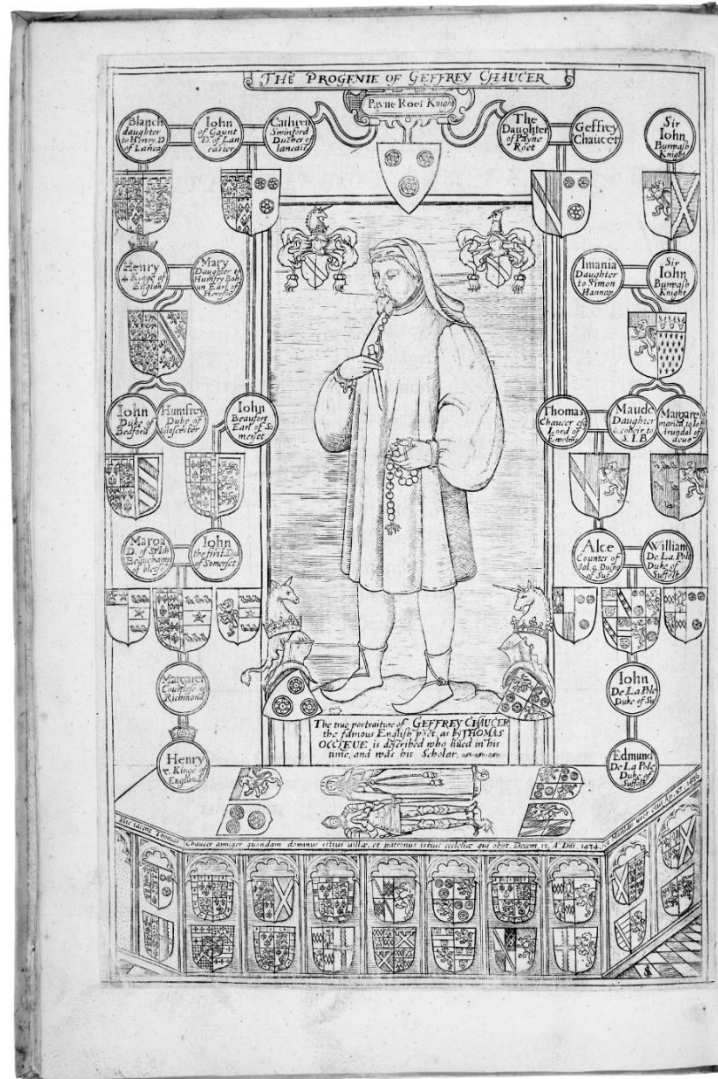 THE PROGENIE OF GEFFREY CHAUCER
Payne Roet Knight
Blanch
daughter
to Henry D
of Lanca
Iohn
of Gaunt
D. of Lan
caster
Swinford
Dutches of
lancast
The
Daughter
of Payne
Roet
Geffrey
Chaucer
Sir
Iohn
Burwash
Knight
Henry
4 Kinge of
Englan
Mary
Daughter of
Humfry Boh
un Earl of
Herefor
Daughter
to Simon
Hannap
Sir
Iohn
Burwash
Knight
Iohn
Duke of
Bedford
Humfrey
Duke of
Glocester
Iohn
Beaufort
Earl of So
merset
Thomas
Chaucer esq
Lord of
Maude
Daughter
coheir to
S. I. B.
Margare
maried to Io
arundal of
Beauchamp
Iohn
the first Du
of Somerset
Alce
Countes of
Sal. & Dutches
of Suf
William
De La Pole
Duke of
Suffolk
Margaret
Countesse of
Richmond
Iohn
De La Pole
Duke of Su
Henry
7 Kinge of
England
Edmund
De La Pole
Duke of
Suffolk
The true portraiture of GEFFREY CHAUCER
the famous English poet, as by THOMAS
OCCLEUE is described who liued in his
time, and was his Scholar.
Hic iacent Thomas
Chaucer armiger quondam dominus istius villæ, et patronus istius ecclesiæ qui obijt. Decem. 12, A° Dni. 1434